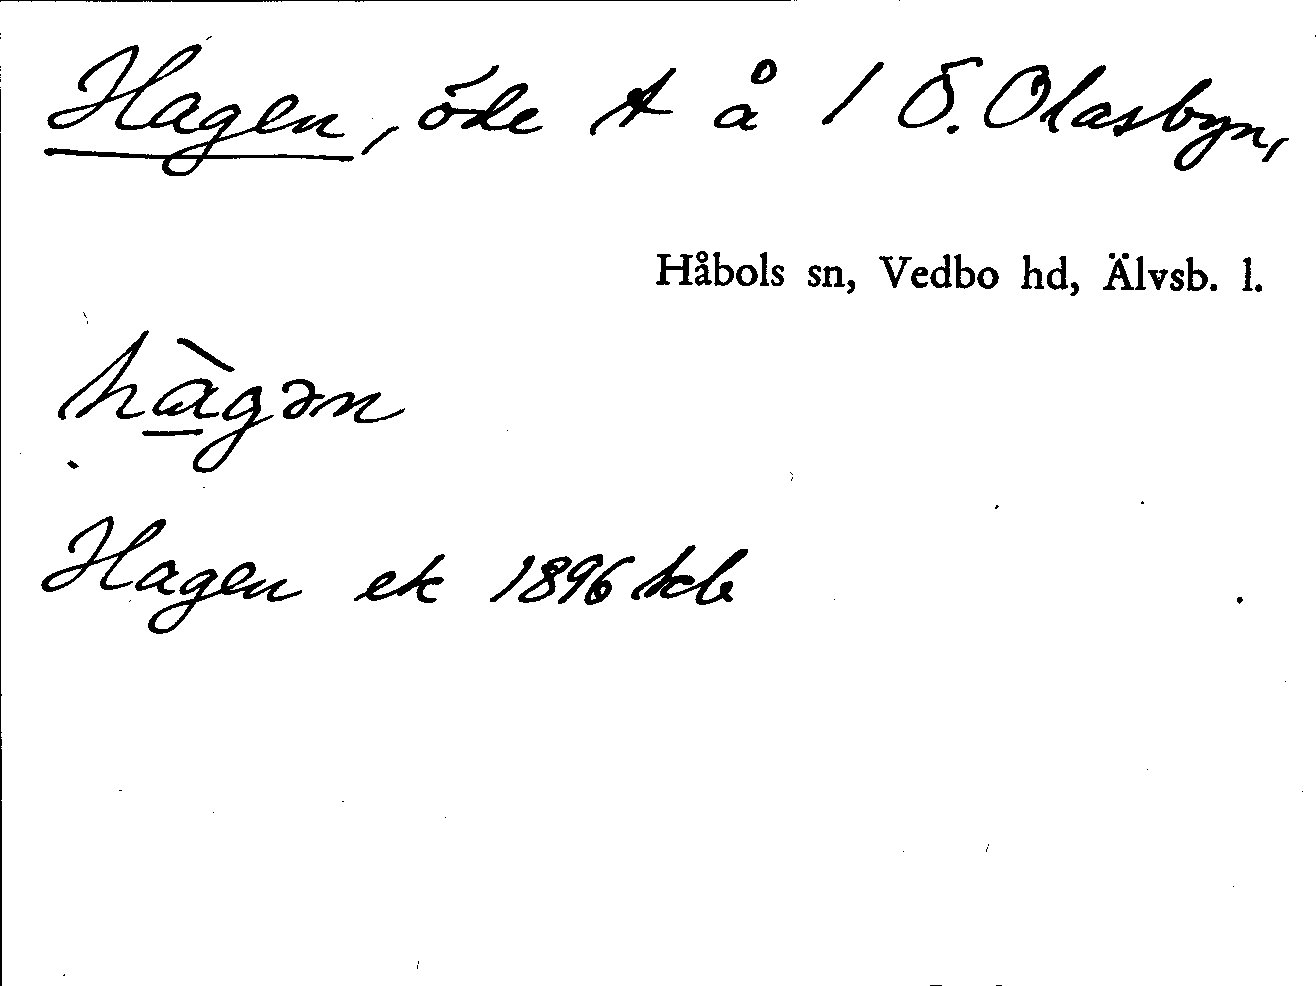 Hagen, öde t å 1 Ö. Olasbyn,
Håbols sn, Vedbo hd, Älvsb. l.
hàgən
Hagen ek 1896 hcb